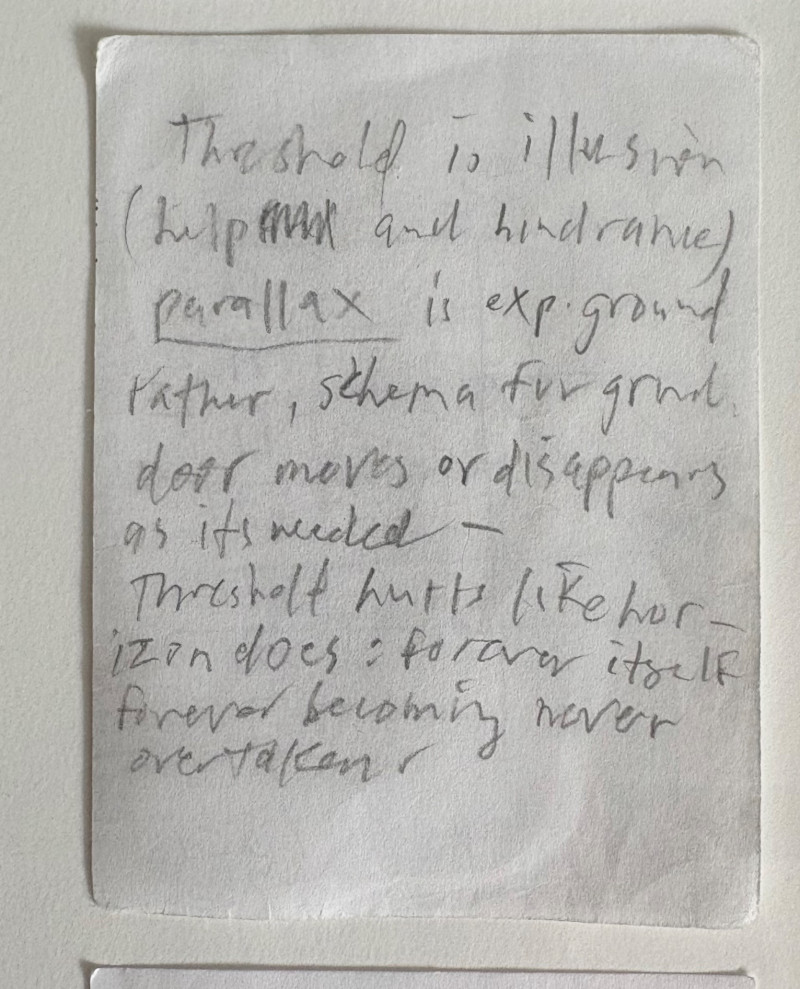 Threshold is illusion
(help and hindrance)
parallax is exp. ground
rather, schema for grnd.
door moves or disappears
as its needed —
Threshold hurts like hor-
izon does : forever itself
forever becoming never
overtaken